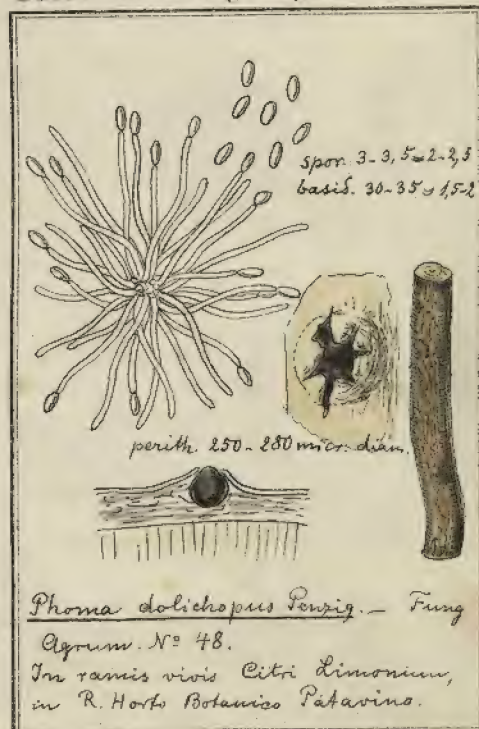 spor. 3-3,5 ⪯ 2-2,5
basid. 30-35 ⪯ 1,5-2
perith. 250-280 micr. diam.
Phoma dolichopus Penzig. — Fung
Agrum. Nº 48.
In ramis vivis Citri Limonium,
in R. Horto Botanico Patavino.